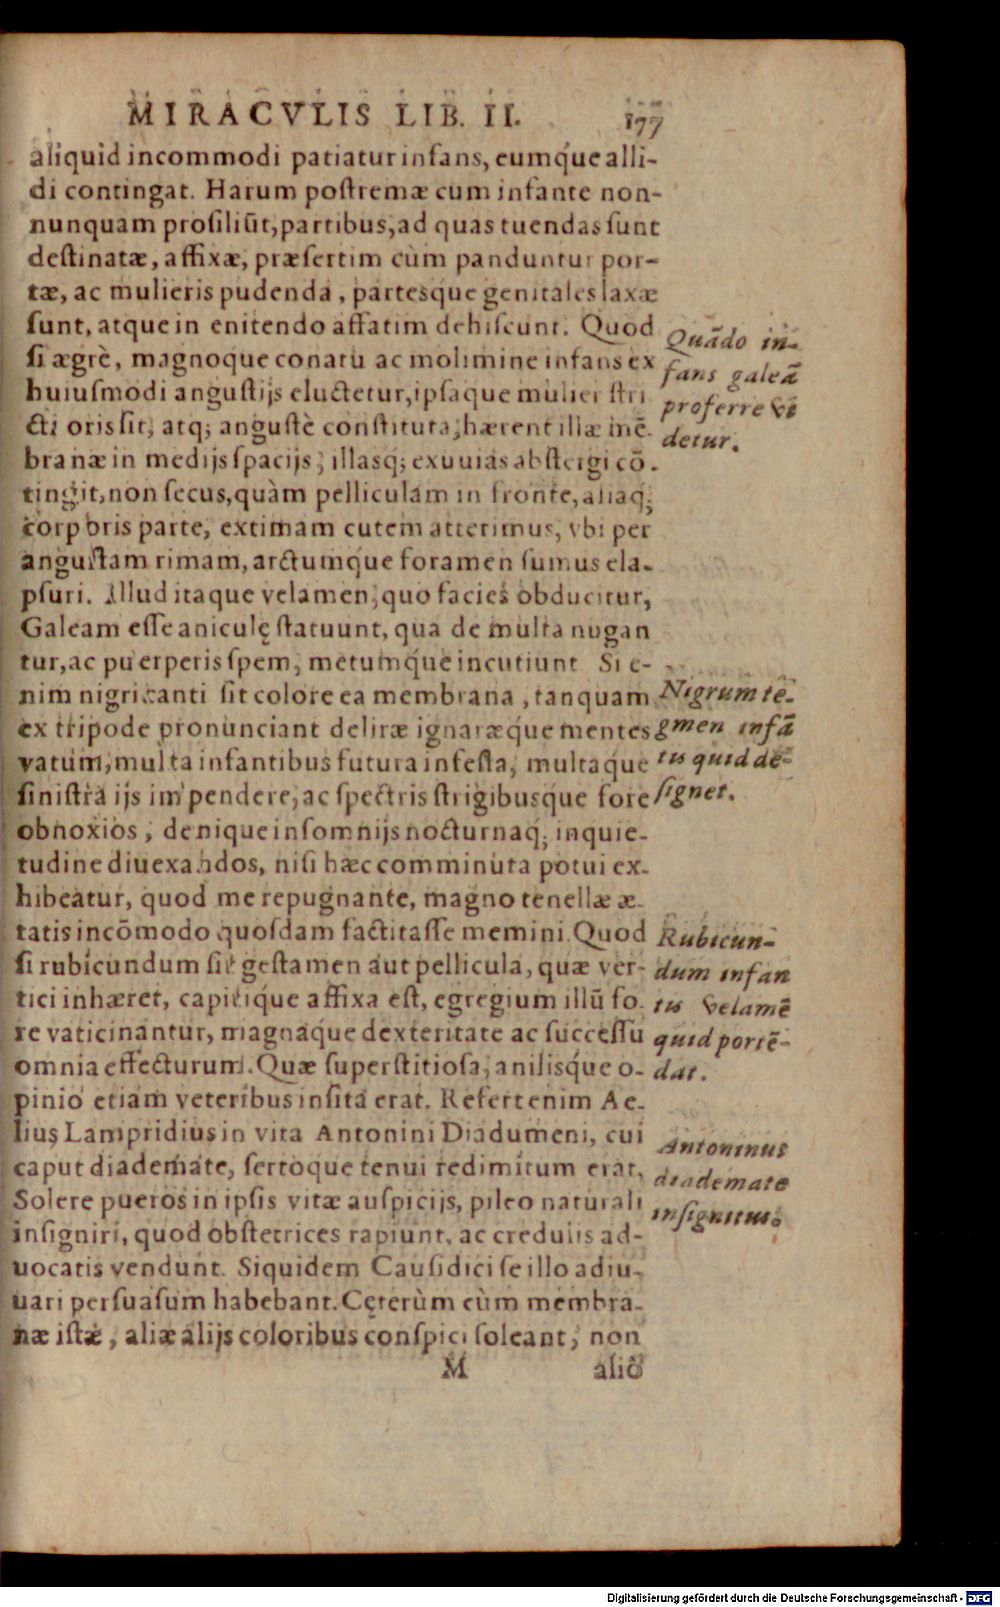 MIRACVLIS LIB. II. 177
aliquid incommodi patiatur infans, eumq́ue alli-
di contingat. Harum postremæ cum infante non-
nunquam prosiliūt, partibus, ad quas tuendas sunt
destinatæ, affixæ, præsertim cùm panduntur por-
tæ, ac mulieris pudenda, partesque genitales laxæ
sunt, atque in enitendo affatim dehiscunt. Quod
si ægrè, magnoque conatu ac molimine infans ex
huiusmodi angustijs eluctetur, ipsaque mulier stri
cti oris sit, atq; angustè constituta, hærent illæ mē-
branæ in medijs spacijs, illasq́; exuuias abstergi cō-
tingit, non secus, quàm pelliculam in fronte, aliaq́;
corporis parte, extimam cutem atterimus, vbi per
angustam rimam, arctumq́ue foramen sumus ela-
psuri. Illud itaque velamen, quo facies obducitur,
Galeam esse aniculę statuunt, qua de multa nugan
tur, ac puerperis spem, metumq́ue incutiunt Si e-
nim nigricanti sit colore ea membrana, tanquam
ex tripode pronunciant deliræ ignaræq́ue mentes
vatum, multa infantibus futura infesta, multaq́ue
sinistra ijs impendere, ac spectris strigibusq́ue fore
obnoxios, denique insomnijs nocturnaq́; inquie-
tudine diuexandos, nisi hæc comminuta potui ex-
hibeatur, quod me repugnante, magno tenellæ æ-
tatis incōmodo quosdam factitasse memini. Quod
si rubicundum sit gestamen aut pellicula, quæ ver-
tici inhæret, capitiq́ue affixa est, egregium illū fo-
re vaticinantur, magnaq́ue dexteritate ac successu
omnia effecturum. Quæ superstitiosa, anilisq́ue o-
pinio etiam veteribus insita erat. Refert enim Ae-
lius Lampridius in vita Antonini Diadumeni, cui
caput diademate, sertoque tenui redimitum erat,
Solere pueros in ipsis vitæ auspicijs, pileo naturali
insigniri, quod obstetrices rapiunt, ac credulis ad-
uocatis vendunt. Siquidem Causidici se illo adiu-
uari persuasum habebant. Cęterùm cùm membra-
næ istæ, aliæ alijs coloribus conspici soleant, non
M alio
Quādo in-
fans galeā
proferre vi
detur.
Nigrum tē-
gmen infā
tis quid de-
signet.
Rubicun-
dum infan
tis velamē
quid portē-
dat.
Antoninus
diademate
insignitus.
Digitalisierung gefördert durch die Deutsche Forschungsgemeinschaft - DFG